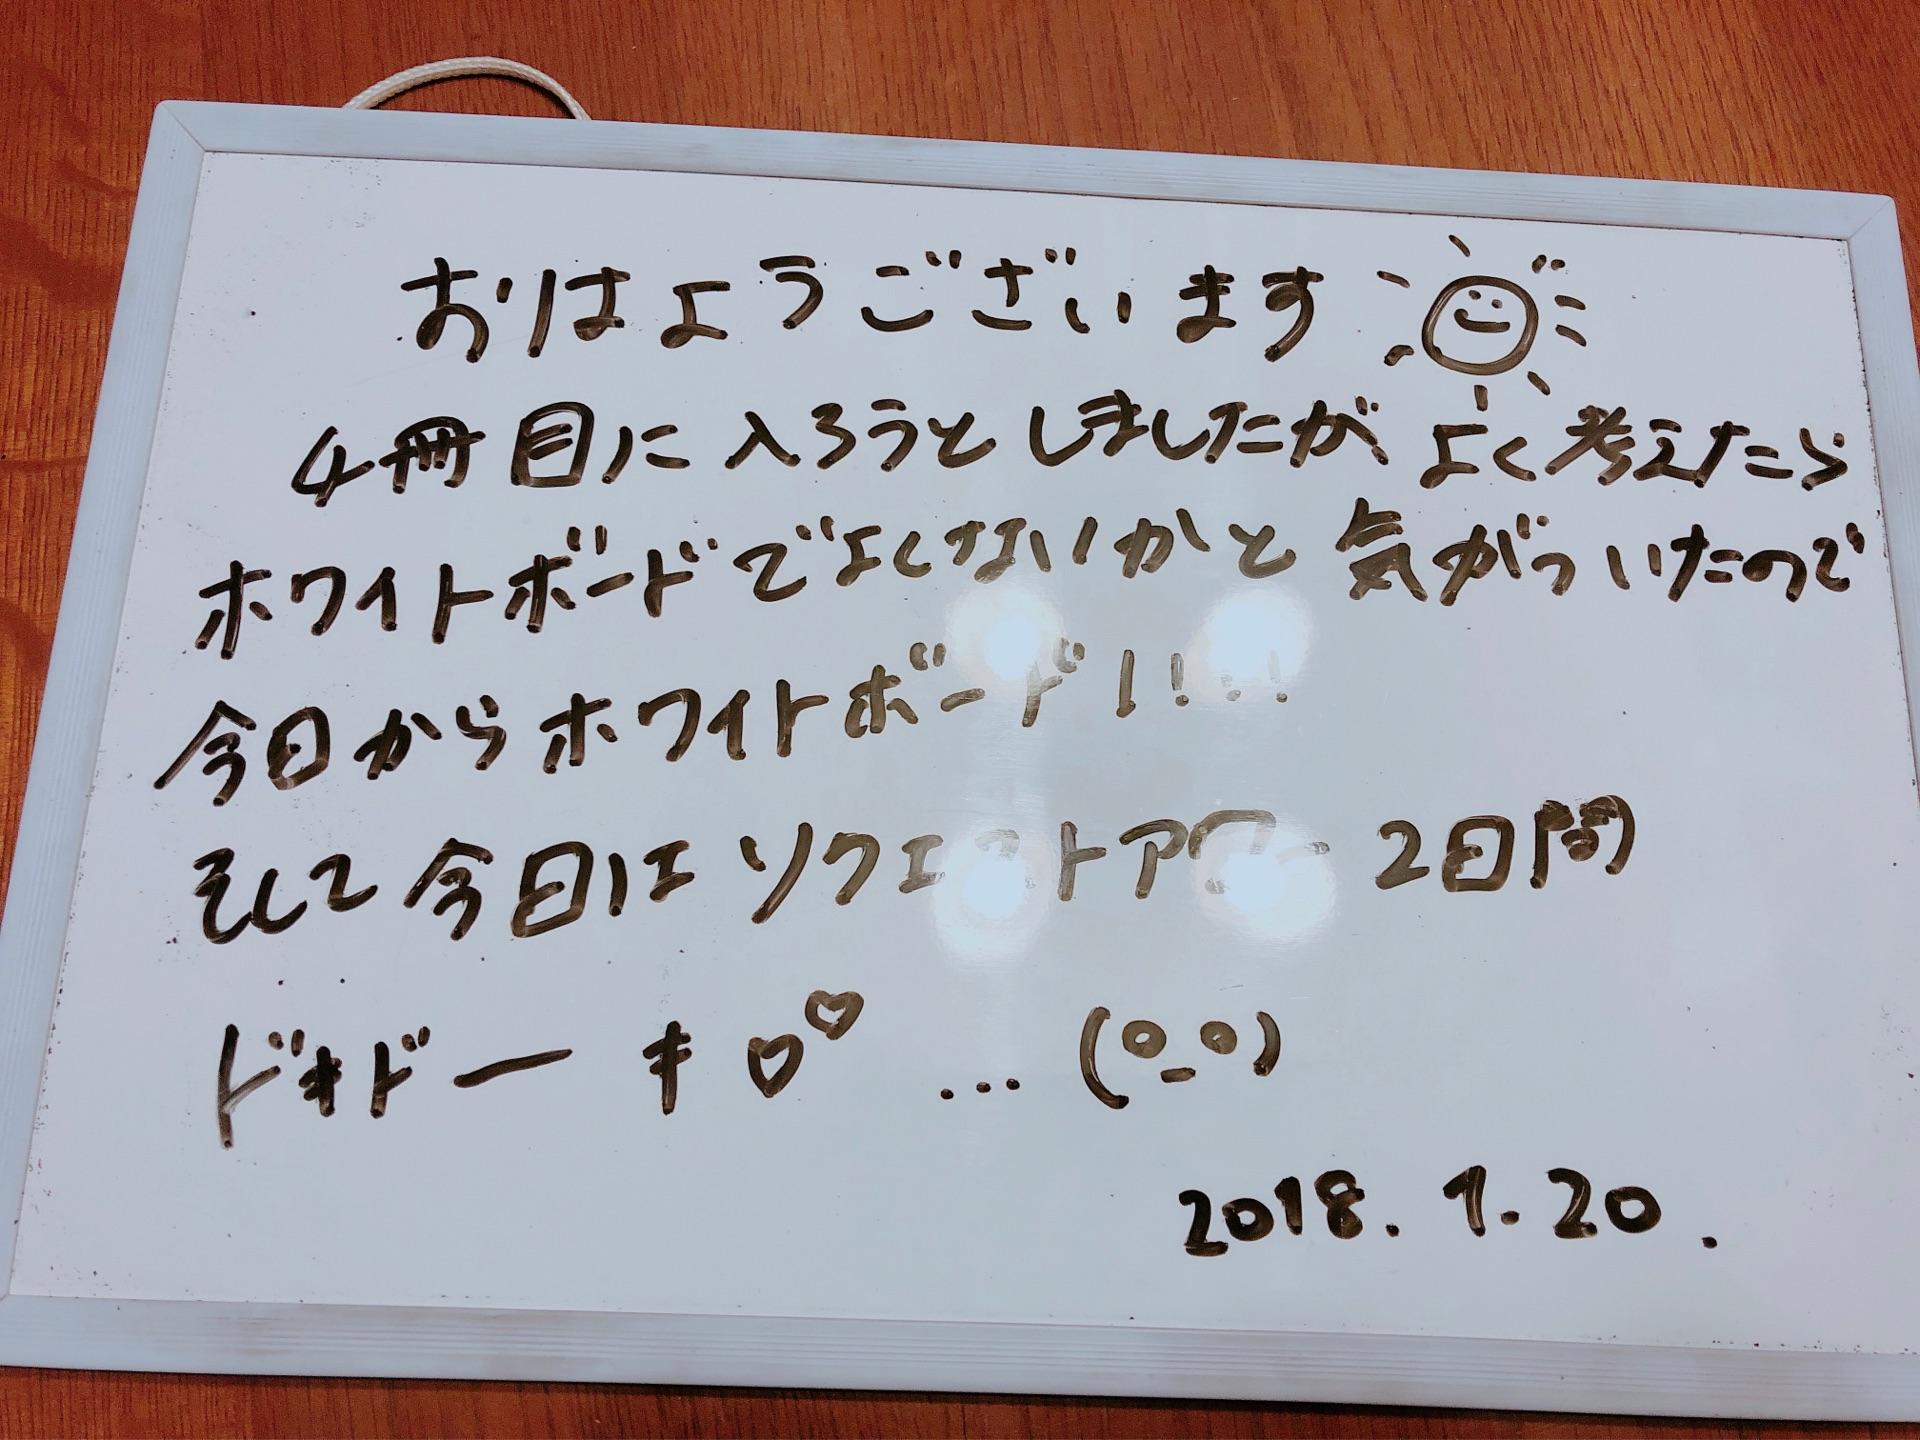 おはようございます
4冊目に入ろうとしましたが よく考えたら
ホワイトボードでよくないかと気がついたので
今日からホワイトボード!!!!
そして今日はリクエストアワー 2日間
ドキドーキ♡♡ ... (°_°)
2018.1.20.